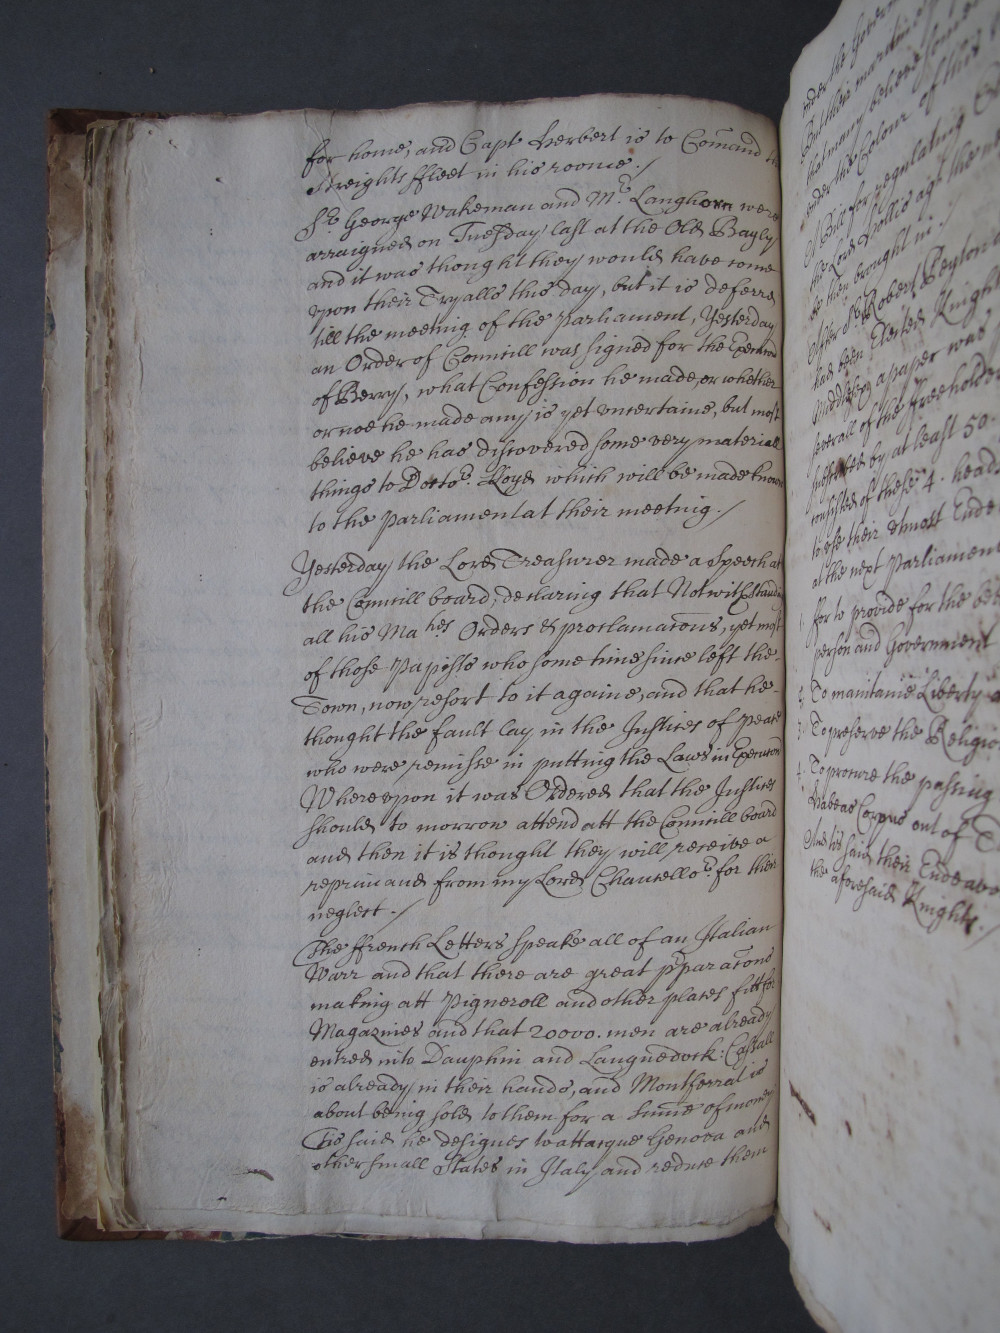 for home, and Capt Herbert is to Com̃and
Streights ffleet in his roome./
Sr. George Wakeman and Mr. Langhorn were
arraigned on Tuesday last at the Old Bayly
and it was thought they would have come
vpon their Tryalls this day, but it is deferrd
till the meeting of the Parliament, Yesterday
an Order of Councill was signed for the
of Berry, what Confession he made, or whether
or noe he made any is yet vncertaine, but most
believe he has discovered some very materiall
things to Doctor. Lloyd which will be made known
to the Parliament at their meeting./
Yesterday the Lord Treasurer made a Speech at
the Councill board, declaring that
all his Maties Orders & proclamac͠ons, yet most
of those Papists who some time since left the
Town, now resort to it againe, and that he
thought the fault lay in the Justices of Peace
who were remisse in putting the Laws in
Wherevpon it was Ordered that the Justices
should to morrow attend att the Councill board
and then it is thought they will receive a
reprimand from my Lord Chancellor. for their
neglect./
The ffrench Letters speake all of an Italian
Warr and that there are great p̃parac͠ons
making att Pigneroll and other places fitt for
Magazines and that 20000. men are already
entred into Dauphin and Languedock: Cassall
is already in their hands, and Montferrat is
about being sold to them for a Sum̃e of money
Tis said he designes to attacque Genova and
other small States in Italy and reduce them
under the
But their maritime
that many believe some
under the Colour of this
A Bill for regulating
the Lord Hollis agt. the
be then brought in./
After Sr. Robert Peyton
had been Elected Knights
Middlesex a paper was
severall of the freeholders
by at least 50
consisted of these 4. heads
to use their vtmost Ende
at the next Parliament
1. ffor to provide for the
person and Government
2. To maintaine Liberty
3. To preserve the Religio
4. To procure the passing
Habeas Corpus out of
And tis said their Endeavo
the aforesaid Knights./